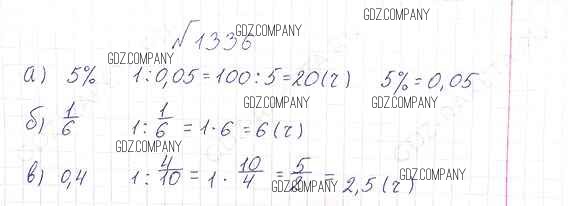 GDZ.COMPANY
№1336 GDZ.COMPANY
GDZ.COMPANY
а) 5% 1:0,05=100:5=20(г) 5%=0,05
GDZ.COMPANY GDZ.COMPANY
б) 1/6 1:1/6=1·6=6(г)
GDZ.COMPANY GDZ.COMPANY
в) 0,4 1:4/10=1·10/4=5/2=2,5(г)
GDZ.COMPANY GDZ.COMPANY